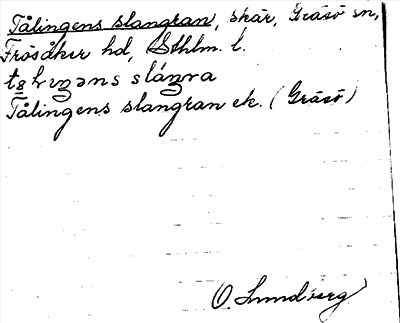 Tålingens slangran, skär, Gräsö sn,
Frösåker hd, Sthlm. l.
sláŋra
Tålingens slangran ek. (Gräsö)
O. Lundberg